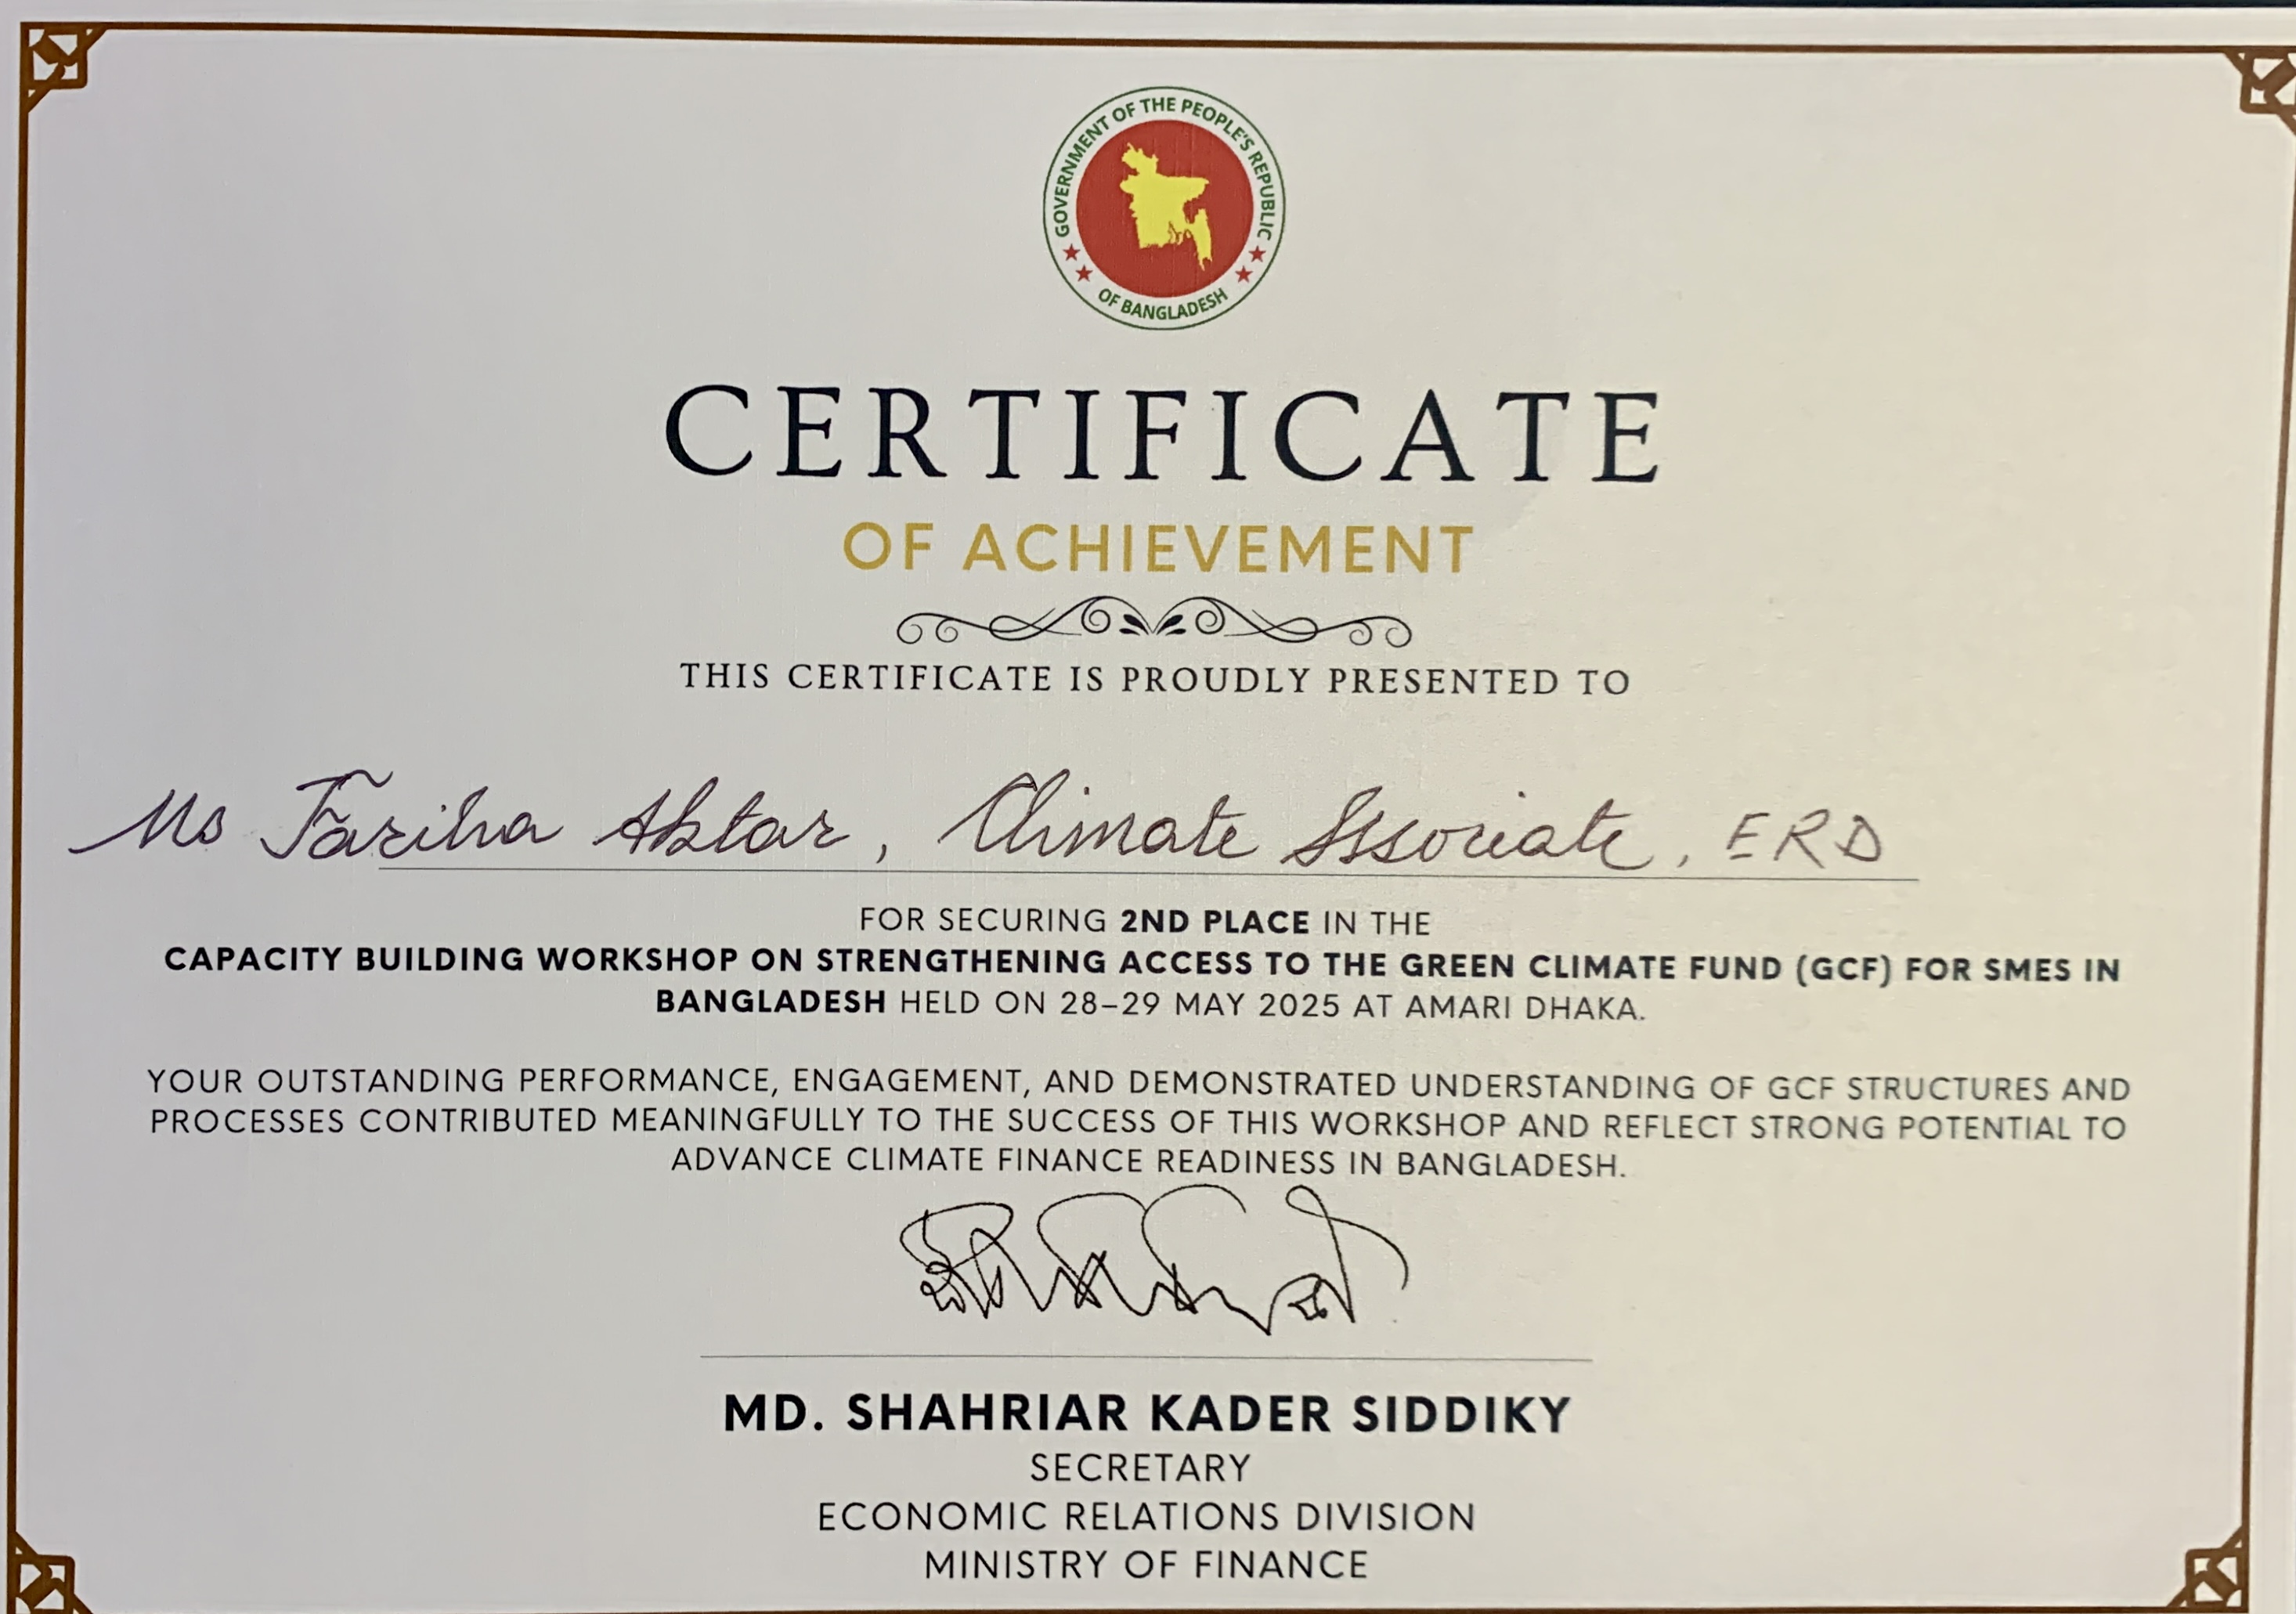 GOVERNMENT OF THE PEOPLE'S REPUBLIC
OF BANGLADESH
CERTIFICATE
OF ACHIEVEMENT
THIS CERTIFICATE IS PROUDLY PRESENTED TO
Ms Fariha Aktar, Climate Associate, ERD
FOR SECURING 2ND PLACE IN THE
CAPACITY BUILDING WORKSHOP ON STRENGTHENING ACCESS TO THE GREEN CLIMATE FUND (GCF) FOR SMES IN
BANGLADESH HELD ON 28–29 MAY 2025 AT AMARI DHAKA.
YOUR OUTSTANDING PERFORMANCE, ENGAGEMENT, AND DEMONSTRATED UNDERSTANDING OF GCF STRUCTURES AND
PROCESSES CONTRIBUTED MEANINGFULLY TO THE SUCCESS OF THIS WORKSHOP AND REFLECT STRONG POTENTIAL TO
ADVANCE CLIMATE FINANCE READINESS IN BANGLADESH.
MD. SHAHRIAR KADER SIDDIKY
SECRETARY
ECONOMIC RELATIONS DIVISION
MINISTRY OF FINANCE